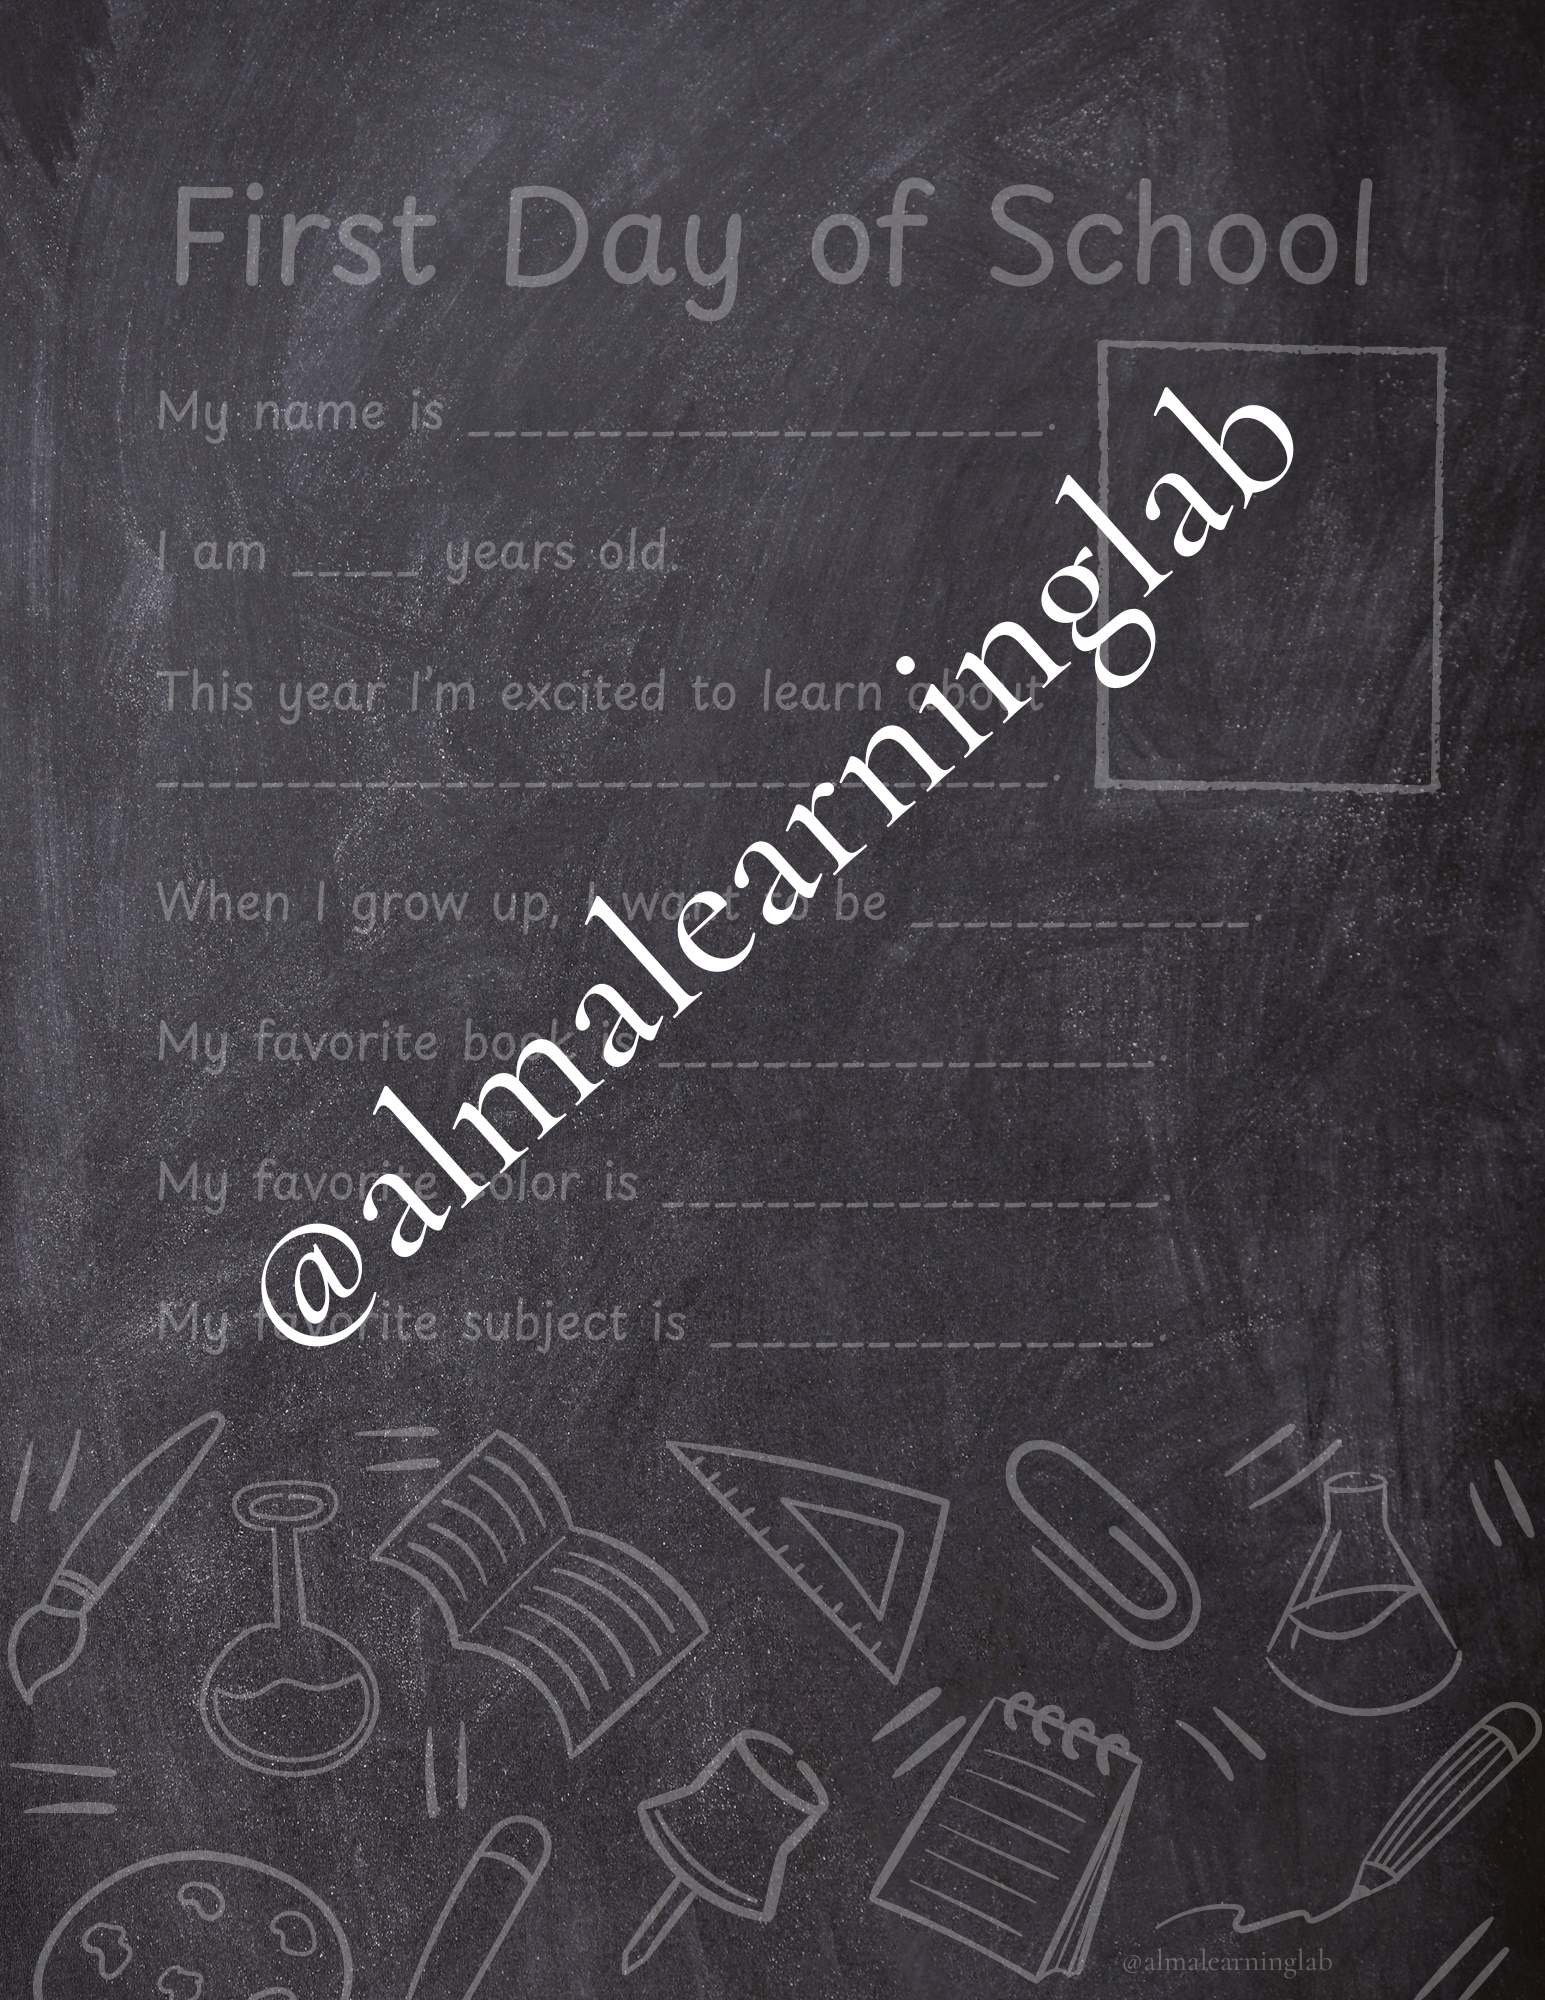 First Day of School
My name is ______________________.
I am _____ years old.
This year I'm excited to learn about
__________________________________.
When I grow up, I want to be _____________.
My favorite book is ___________________.
My favorite color is ___________________.
My favorite subject is _________________.
@almalearninglab
@almalearninglab